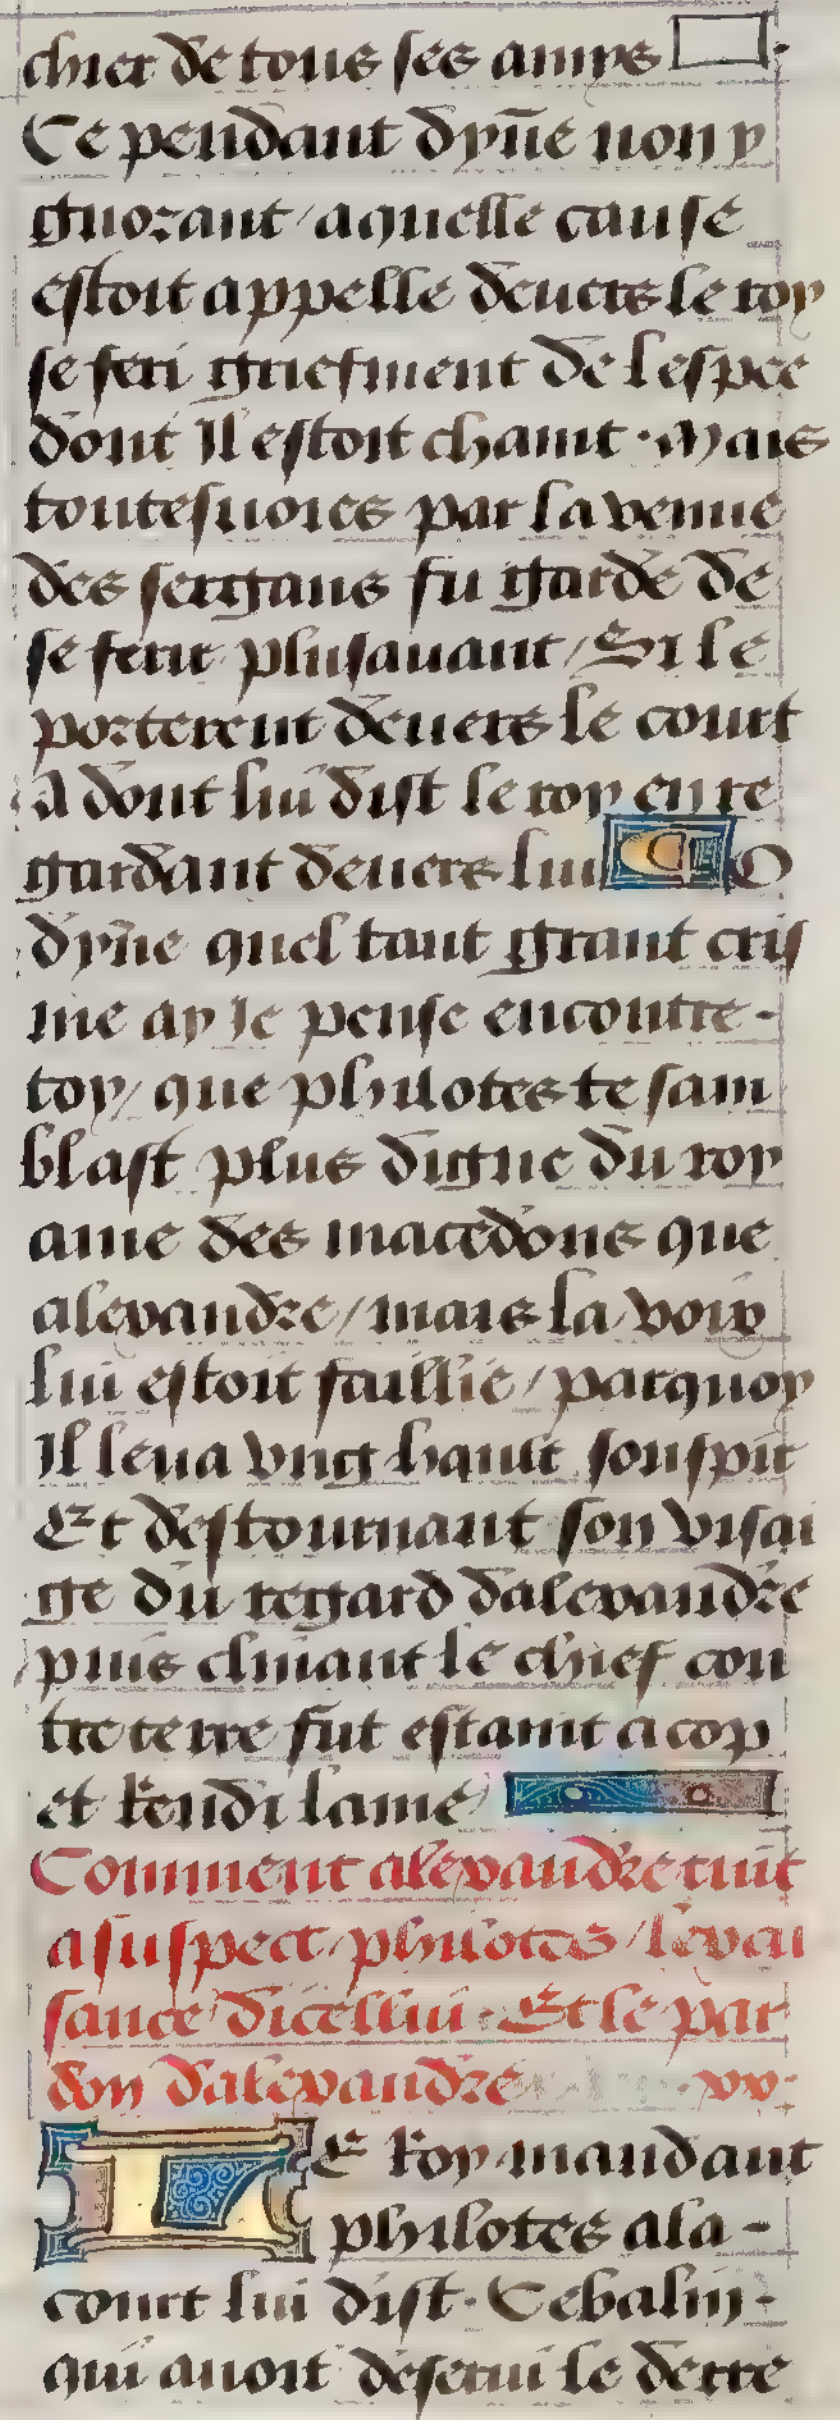 chier de tous ses amys
Ce pendant dyn̄e non y
gnorant / a quelle cause
estoit appelle deuers le roy
se feri griefment de lespee
dont Il estoit chaint · Mais
toutesuoies par la venue
des sergans fu garde de
se ferir plusauant / Si le
porterent deuers le court
a dont lui dist le roy en re
gardant deuers lui O
dyn̄e quel tant grant cris
me ay Je pense encontre -
toy / que philotes te sam
blast plus digne du roy
ame des macedons que
alexandre / mais la voix
lui estoit faillie / parquoy
Il leua vng hault souspir
Et destournant son visai
ge du regard dalexandre
puis clinant le chief con
tre terre fut estaint a cop
et Rendi lame
Comment alexandre tint
a suspect / philotes / lexcu
sance dicellui · Et le par
don dalexandre xx ·
LE Roy mandant
philotes a la -
court lui dist · Cebalin -
qui auoit deserui le derre